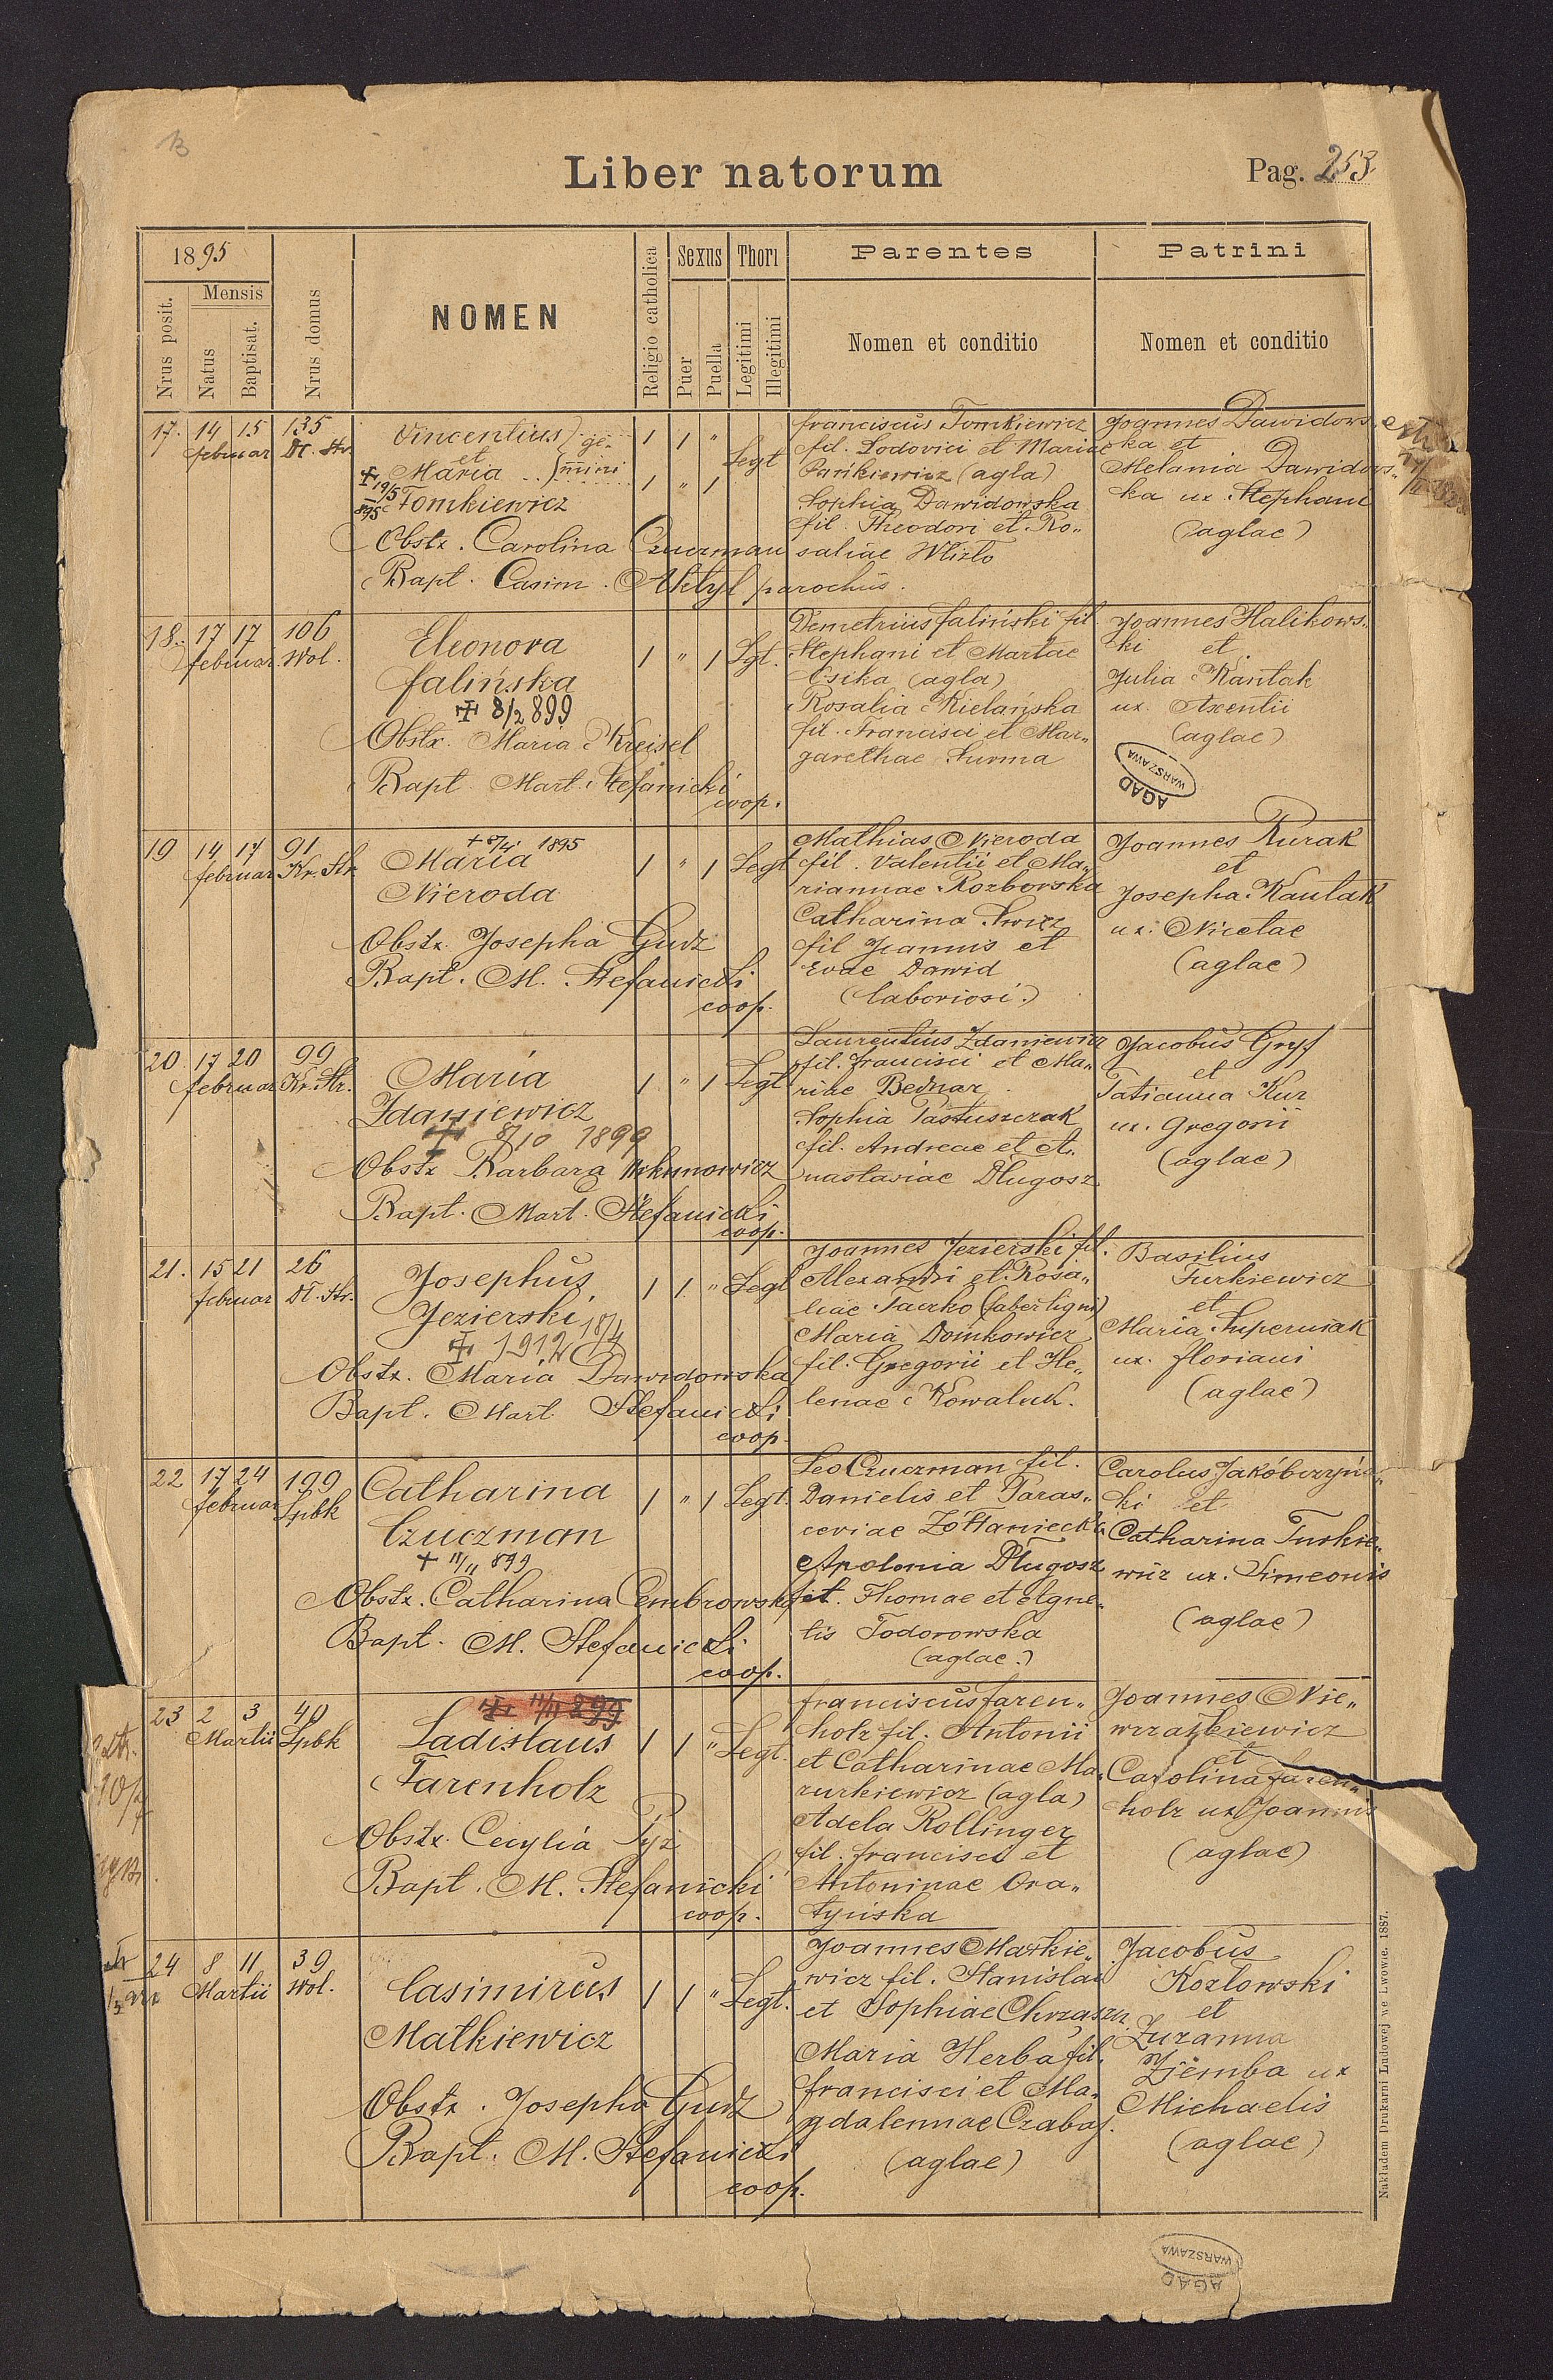 Liber natorum
Pag. 253
1895
Nrus posit.
Mensis
Natus
Baptisat.
Nrus domus
NOMEN
Religio catholica
Sexus
Puer
Puella
Thori
Legitimi
Illegitimi
Parentes
Nomen et conditio
Patrini
Nomen et conditio
17. 14 15 135
februar Dł. Str.
Vincentius } ge-
et
Maria } mini
+ 19/5 895 Tomkiewicz
1 1 "
Legt
1 " 1
Obstx. Carolina Czuczman
Bapt. Casim. parochus.
franciscus Tomkiewicz
fil. Lodovici et Mariae
(agla)
Sophia Dawidowska
fil. Theodori et Ro„
saliae
Joannes Dawidows„
ka et
Melania Dawidows„
ka ux. Stephani
(aglae)
18. 17 17 106
februar Wol.
Eleonora
falińska
+ 8/2 899
1 " 1 Lgt.
Obstx. Maria Kreisel
Bapt. Mart. Stefanicki
coop.
Demetrius faliński fil.
Stephani et Martae
Csika (agla)
Rosalia Kielańska
fil. Francisci et Mar„
garethae Surma
Joannes Halikows„
ki et
Julia Kantak
ux. Axentii
(aglae)
AGAD
WARSZAWA
19 14 17 91
februar Kr. Str.
+ 8/4 1895
Maria
Nieroda
1 " 1 Legt
Obstx. Josepha Gudz
Bapt. M. Stefanicki
coop.
Mathias Nieroda
fil. Valentii et Ma„
riannae Rozborska
Catharina
fil Joannis et
Evae Dawid
(laboriosi.)
Joannes Kurak
et
Josepha Kantak
ux. Nicetae
(aglae)
20 17 20 99
februar Kr. Str.
Maria
Zdaniewicz
+ 8/10 1899
1 " 1 Legt
Obstx Barbara
Bapt. Mart. Stefanicki
coop.
Laurentius Zdaniewicz
fil. francisci et Ma„
riae Bednar
Sophia Pastuszczak
fil. Andreae et A.
nastasiae Długosz.
Jacobus Gryf
et
Tatianna Kur
ux. Gregorii
(aglae)
21. 15 21 26
februar Dł. Str.
Josephus
Jezierski
+ 1912 18/4
1 1 " Legt
Obstx. Maria Dawidowska
Bapt. Mart Stefanicki
coop.
Joannes Jezierski fil.
Alexandri et Rosa„
liae Taczko (faber ligni)
Maria Domkowicz
fil. Gregorii et He„
lenae Kowaluk.
Basilius
Turkiewicz
et
Maria Superniak
ux. floriani
(aglae)
22 17 24 199
februar Lpbk
Catharina
Czuczman
+ 11/11 899
1 " 1 Legt.
Obstx. Catharina Cembrowska
Bapt. M. Stefanicki
coop.
Leo Czuczman fil.
Danielis et Paras„
ceviae Żółtaniecka
Apolonia Długosz
fil. Thomae et Agne„
tis Todorowska
(aglae.)
Carolus Jakóbczyńs„
ki et
Catharina Turkie„
wicz ux. Simeonis
(aglae)
23 2 3 40
Martii Lpbk
+ 11/11 899
Ladislaus
Farenholz
1 1 " Legt.
Obstx. Cecylia Pyż
Bapt. M. Stefanicki
coop.
franciscus faren„
holz fil. Antonii
et Catharinae Ma„
zurkiewicz (agla)
Adela Rollinger
fil. francisci et
Antoninae Ora„
tyńska
Joannes Nie„
wrzałkiewicz
et
Carolina faren„
holz ux. Joannis
(aglae)
24 8 11 39
Martii Wol.
Casimirus
Matkiewicz
1 1 " Legt.
Obstx. Josepha Gudz
Bapt. M. Stefanicki
coop.
Joannes Matkie„
wicz fil. Stanislai
et Sophiae
Maria Herba fil.
francisci et Ma„
gdalennae Czabaj.
(aglae)
Jacobus
Kozlowski
et
Zuzanna
Ziemba ux
Michaelis
(aglae)
Nakładem Drukarni Ludowej we Lwowie. 1887.
AGAD
WARSZAWA